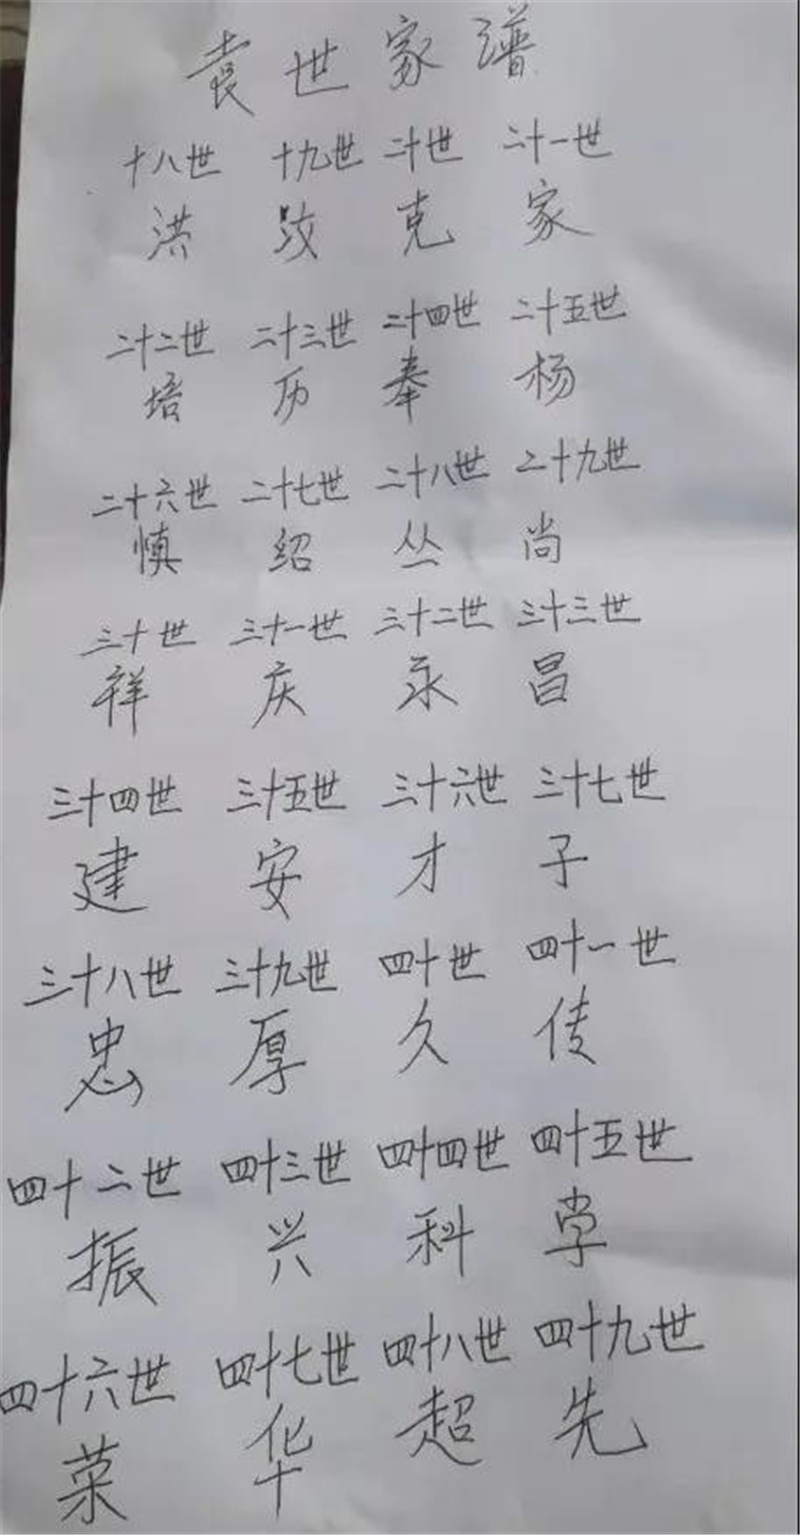 袁世家谱
十八世 十九世 二十世 二十一世
洪 汝 克 家
二十二世 二十三世 二十四世 二十五世
培 历 奉 杨
二十六世 二十七世 二十八世 二十九世
慎 绍 丛 尚
三十世 三十一世 三十二世 三十三世
祥 庆 永 昌
三十四世 三十五世 三十六世 三十七世
建 安 才 子
三十八世 三十九世 四十世 四十一世
忠 厚 久 传
四十二世 四十三世 四十四世 四十五世
振 兴 科 学
四十六世 四十七世 四十八世 四十九世
菜 华 超 先